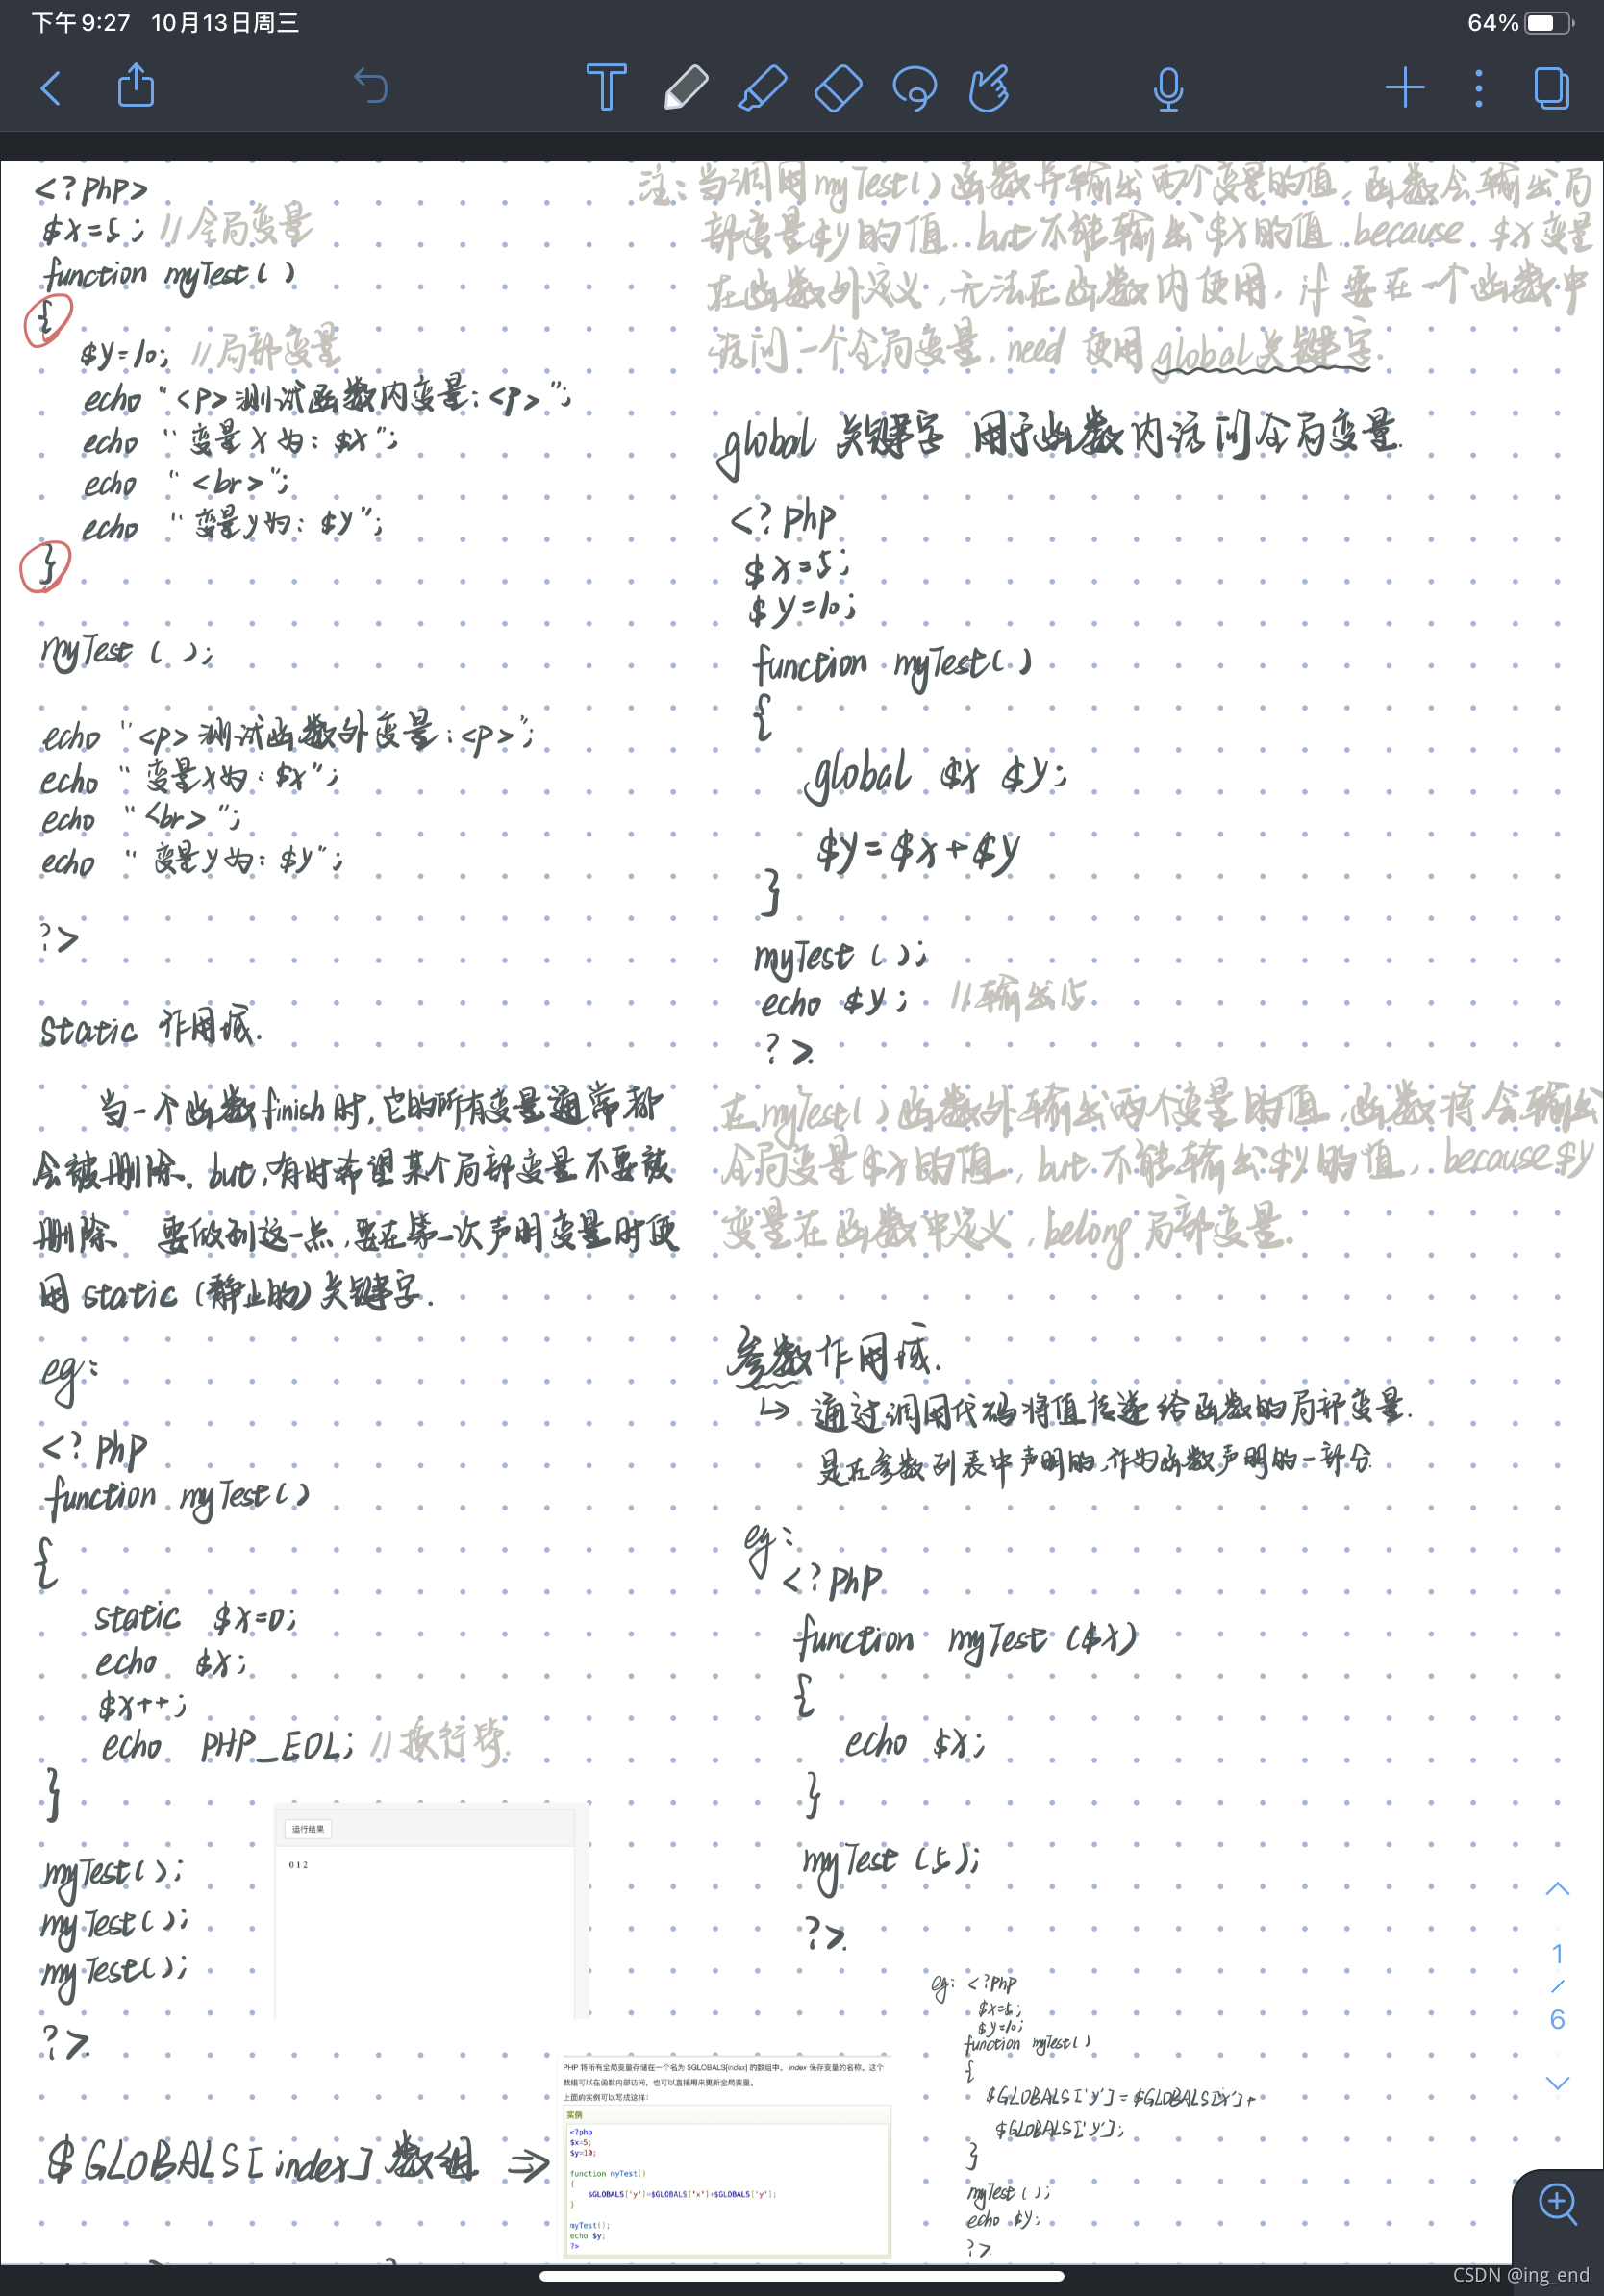 下午9:27 10月13日周三
64%
<?php>
$x=5; //全局变量
function myTest()
{
$y=10; //局部变量
echo "<p>测试函数内变量:<p>";
echo "变量x为: $x";
echo "<br>";
echo "变量y为: $y";
}
myTest();
echo "<p>测试函数外变量:<p>";
echo "变量x为: $x";
echo "<br>";
echo "变量y为: $y";
?>
static 作用域.
当一个函数finish时,它的所有变量通常都
会被删除。but,有时希望某个局部变量不要被
删除、 要做到这一点,要在第一次声明变量时使
用 static (静止的)关键字.
eg:
<?php
function myTest()
{
static $x=0;
echo $x;
$x++;
echo PHP_EOL; //换行符.
}
myTest();
myTest();
myTest();
?>.
运行结果
0 1 2
$GLOBALS[index]数组 ⇒
PHP 将所有全局变量存储在一个名为 $GLOBALS[index] 的数组中。 index 保存变量的名称。这个
数组可以在函数内部访问,也可以直接用来更新全局变量。
上面的实例可以写成这样:
实例
<?php
$x=5;
$y=10;
function myTest()
{
$GLOBALS['y']=$GLOBALS['x']+$GLOBALS['y'];
}
myTest();
echo $y;
?>
注:当调用myTest()函数并输出两个变量的值,函数会输出局
部变量$y的值.but不能输出$x的值.because $x变量
在函数外定义,无法在函数内使用,if 要在一个函数中
访问一个全局变量,need 使用global关键字.
global 关键字 用于函数内访问全局变量.
<?php
$x=5;
$y=10;
function myTest()
{
global $x $y;
$y=$x+$y
}
myTest();
echo $y; //输出15
?>.
在myTest()函数外输出两个变量的值,函数将会输出
全局变量$x的值,but不能输出$y的值,because $y
变量在函数中定义,belong局部变量。
参数作用域.
↳ 通过调用代码将值传递给函数的局部变量.
是在参数列表中声明的,作为函数声明的一部分.
eg:
<?php
function myTest ($x)
{
echo $x;
}
myTest (5);
?>.
eg: <?php
$x=5;
$y=10;
function myTest()
{
$GLOBALS['y']=$GLOBALS['x']+
$GLOBALS['y'];
}
myTest();
echo $y;
?>
1
/
6
CSDN @ing_end